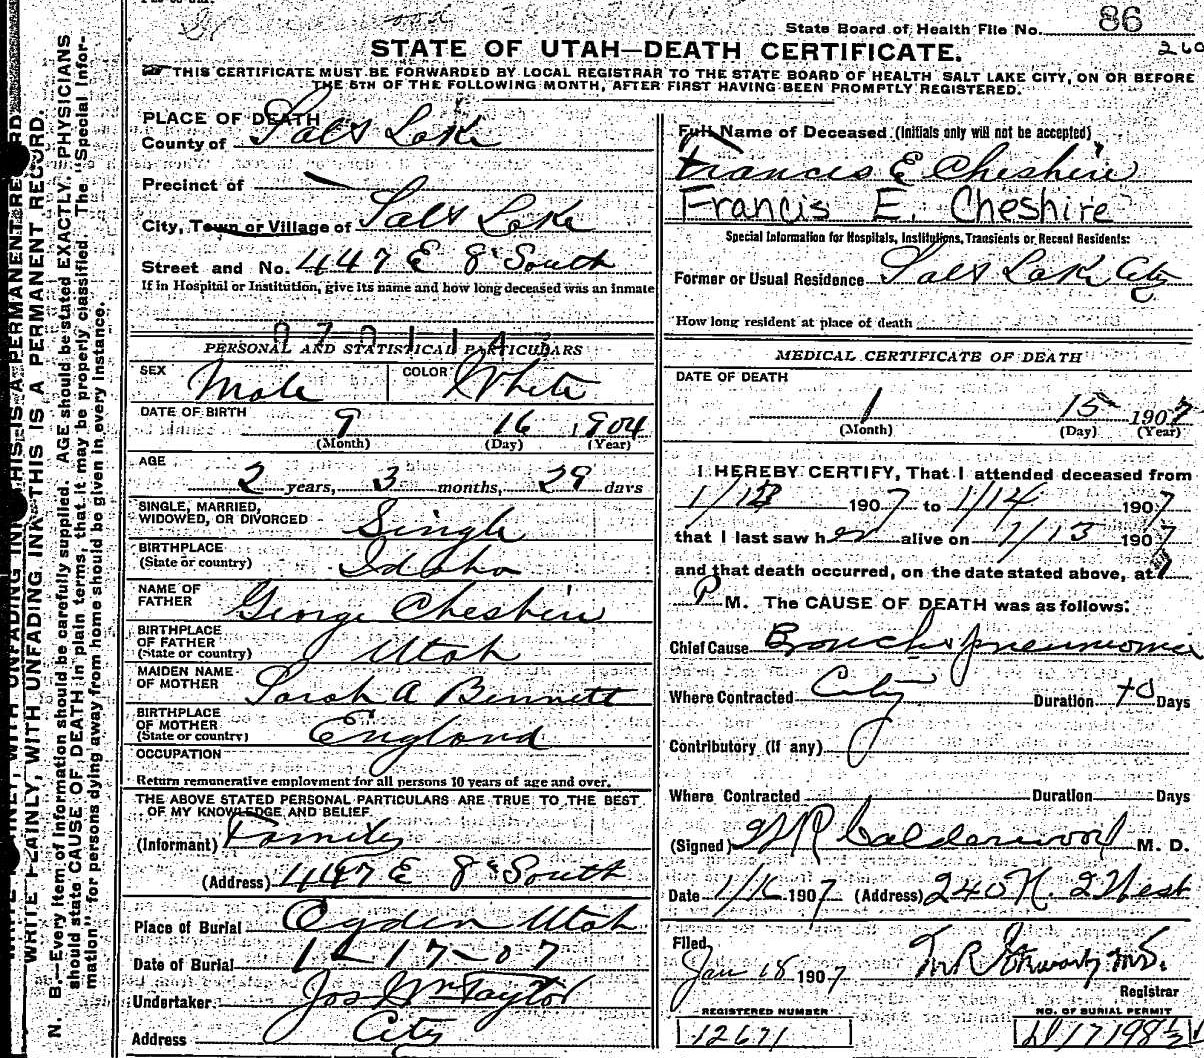 State Board of Health File No. 86
STATE OF UTAH—DEATH CERTIFICATE.
THIS CERTIFICATE MUST BE FORWARDED BY LOCAL REGISTRAR TO THE STATE BOARD OF HEALTH SALT LAKE CITY, ON OR BEFORE
THE 5TH OF THE FOLLOWING MONTH, AFTER FIRST HAVING BEEN PROMPTLY REGISTERED.
WRITE PLAINLY, WITH UNFADING INK—THIS IS A PERMANENT RECORD.
WRITE PLAINLY, WITH UNFADING INK—THIS IS A PERMANENT RECORD.
N. B.—Every item of information should be carefully supplied. AGE should be stated EXACTLY. PHYSICIANS
should state CAUSE OF DEATH in plain terms, that it may be properly classified. The "Special Infor-
mation" for persons dying away from home should be given in every instance.
PLACE OF DEATH
County of Salt Lake
Precinct of
City, Town or Village of Salt Lake
Street and No. 447 E 8" South
If in Hospital or Institution, give its name and how long deceased was an inmate
PERSONAL AND STATISTICAL PARTICULARS
SEX Male COLOR White
DATE OF BIRTH
9 16 1904
(Month) (Day) (Year)
AGE
2 years, 3 months, 29 days
SINGLE, MARRIED,
WIDOWED, OR DIVORCED Single
BIRTHPLACE
(State or country) Idaho
NAME OF
FATHER George Cheshire
BIRTHPLACE
OF FATHER
(State or country) Utah
MAIDEN NAME
OF MOTHER Sarah A Bennett
BIRTHPLACE
OF MOTHER
(State or country) England
OCCUPATION
Return remunerative employment for all persons 10 years of age and over.
THE ABOVE STATED PERSONAL PARTICULARS ARE TRUE TO THE BEST
OF MY KNOWLEDGE AND BELIEF
(Informant) Family
(Address) 447 E 8" South
Place of Burial Ogden Utah
Date of Burial 1-17-07
Undertaker Jos Wm Taylor
Address City
Full Name of Deceased (Initials only will not be accepted)
Francis E Cheshire
Francis E. Cheshire
Special Information for Hospitals, Institutions, Transients or Recent Residents:
Former or Usual Residence Salt Lake City
How long resident at place of death
MEDICAL CERTIFICATE OF DEATH
DATE OF DEATH
1 15 1907
(Month) (Day) (Year)
I HEREBY CERTIFY, That I attended deceased from
1/13 1907 to 1/14 1907
that I last saw her alive on 1/13 1907
and that death occurred, on the date stated above, at
P M. The CAUSE OF DEATH was as follows:
Chief Cause Broncho pneumonia
Where Contracted City Duration 10 Days
Contributory (If any)
Where Contracted Duration Days
(Signed) W R Calderwood M. D.
Date 1/16 1907 (Address) 240 N. 2 West
Filed,
Jan 18 1907
Registrar
REGISTERED NUMBER
12671
NO. OF BURIAL PERMIT